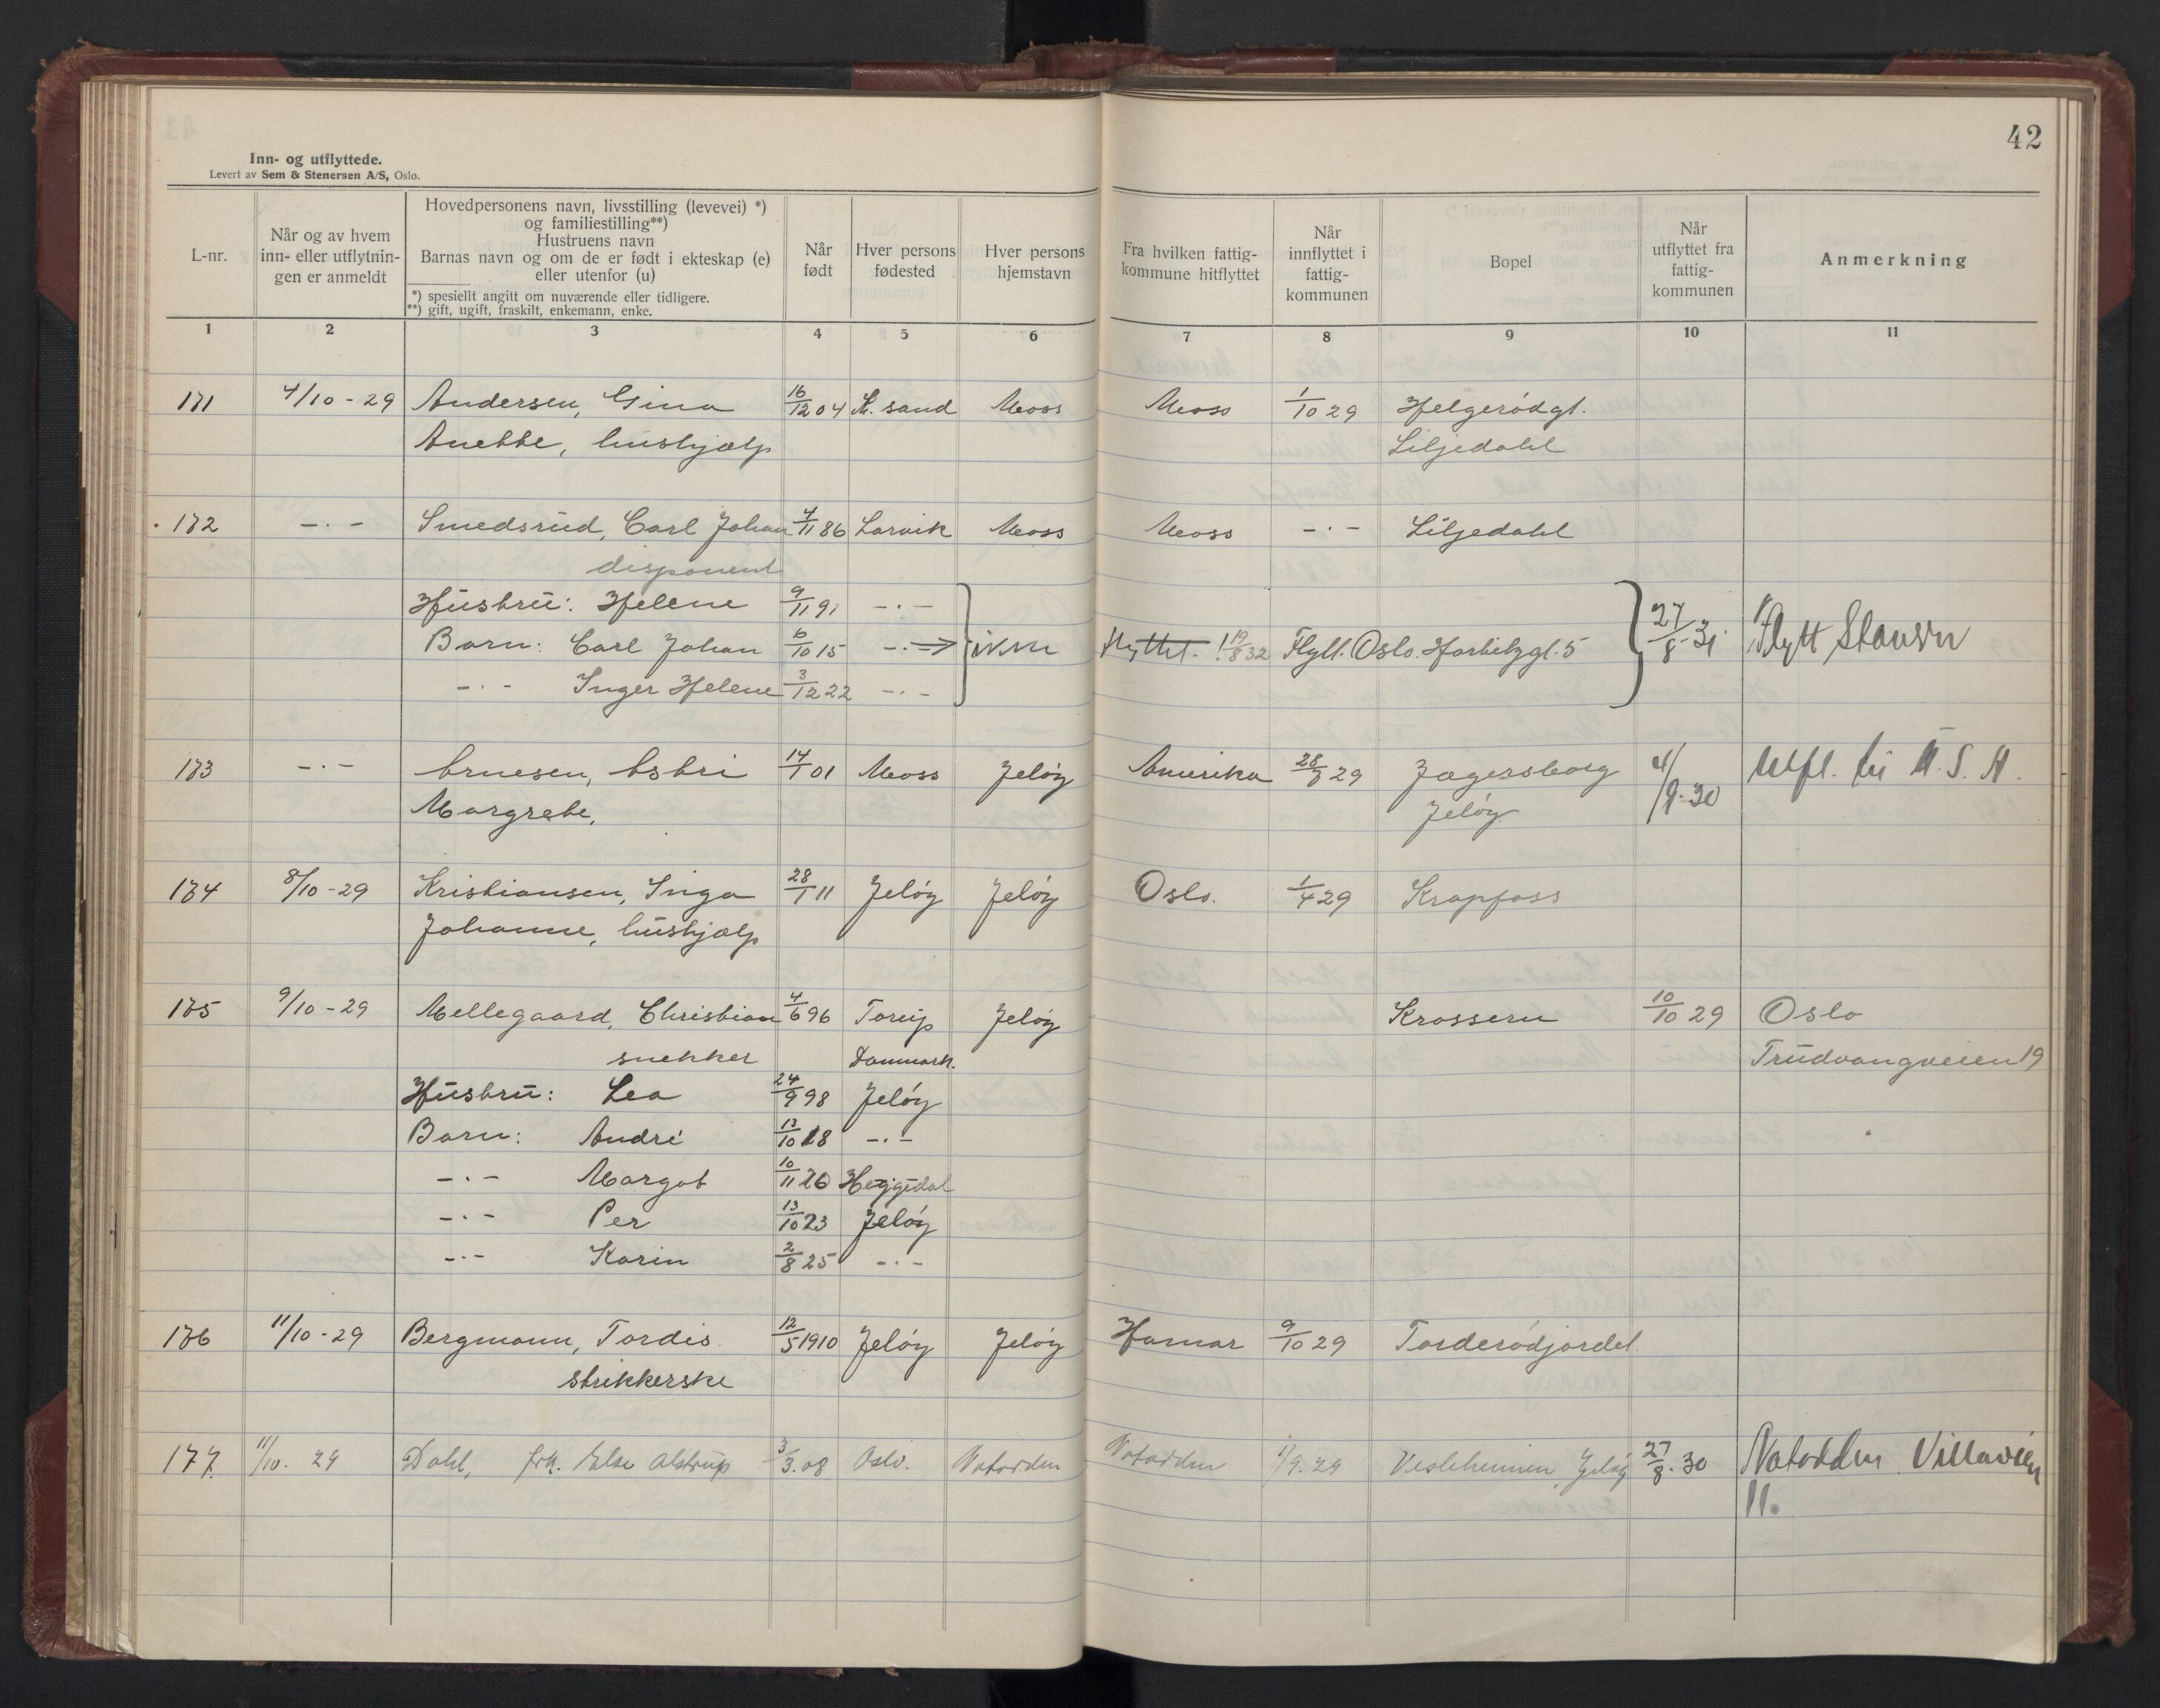 42
Inn- og utflyttede.
Levert av Sem & Stenersen A/S, Oslo.
L-nr.
Når og av hvem inn- eller utflytnin- gen er anmeldt
Hovedpersonens navn, livsstilling (levevei) *)
og familiestilling**)
Hustruens navn
Barnas navn og om de er født i ekteskap (e)
eller utenfor (u)
*) spesiellt angitt om nuværende eller tidligere.
**) gift, ugift, fraskilt, enkemann, enke.
Når født
Hver persons fødested
Hver persons hjemstavn
Fra hvilken fattig- kommune hitflyttet
Når innflyttet i fattig- kommunen
Bopel
Når utflyttet fra fattig- kommunen
Anmerkning
1 2 3 4 5 6 7 8 9 10 11
171 4/10 - 29 Andersen, Gina 16/12 04 Kr. sand Moss Moss 1/10 29 Helgerødgt.
Anette, hushjælp Liljedahl
172 -·- Smedsrud, Carl Johan 4/11 86 Larvik Moss Moss -·- Liljedahl
disponent
Hustru: Helene 9/11 91 -·-
Barn: Carl Johan 6/10 15 -·- ikke flyttet. ! 19/8 32 Flytt. Oslo. Harbitzgt. 5 27/8-31 Flytt
-·- Inger Helene 3/12 22 -·-
173 -·- Arnesen, Astri 14/1 01 Moss Jeløy Amerika 28/8 29 Jægersborg 4/9-30 Utfl. til U.S.A.
Margrete, Jeløy
174 8/10 - 29 Kristiansen, Inga 28/1 11 Jeløy Jeløy Oslo. 1/4 29 Krapfoss
Johanne, hushjælp
175 9/10 - 29 Mellegaard, Christian 4/6 96 Torup Jeløy Krossern 10/10 29 Oslo
snekker Danmark. Trudvangveien 19
Hustru: Lea 24/9 98 Jeløy
Barn: André 13/10 18 -·-
-·- Margot 10/11 20 Heggedal
-·- Per 13/10 23 Jeløy
-·- Karin 2/8 25 -·-
176 11/10 - 29 Bergmann, Tordis 12/5 1910 Jeløy Jeløy Hamar 9/10 29 Torderødjordet.
strikkerske
177. 11/10. 29 Dahl, frk. Else Alstrup 3/3. 08 Oslo. Notodden Notodden 1/9. 29 Vesleheimen, Jeløy 27/8. 30 Notodden Villaveien
11.